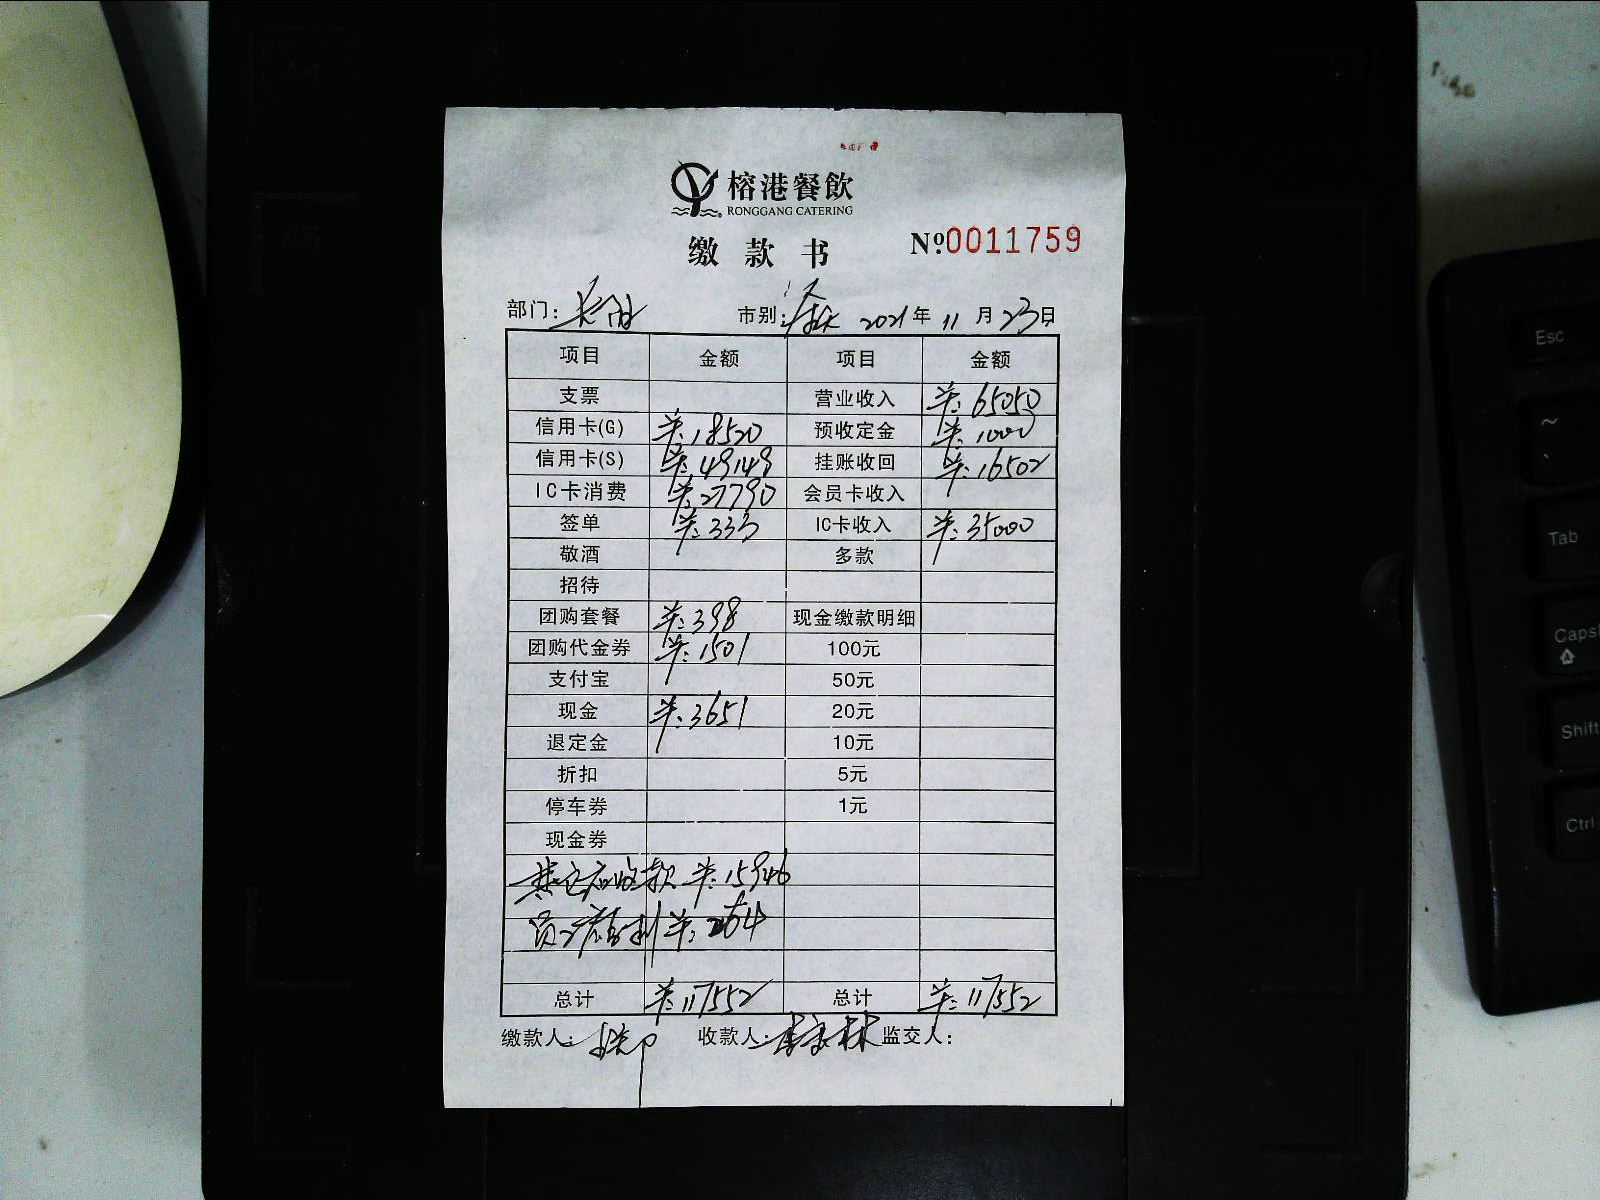 榕港餐飲
RONGGANG CATERING
缴款书 №0011759
部门: 市别: 2021年11月23日
项目 金额 项目 金额
支票 营业收入 ¥:65050
信用卡(G) ¥:18520 预收定金 ¥:1000
信用卡(S) ¥:49149 挂账收回 ¥:16502
IC卡消费 ¥:27790 会员卡收入
签单 ¥:333 IC卡收入 ¥:35000
敬酒 多款
招待
团购套餐 ¥:398 现金缴款明细
团购代金券 ¥:1501 100元
支付宝 50元
现金 ¥:3651 20元
退定金 10元
折扣 5元
停车券 1元
现金券
其它应收款 ¥:15946
员工福利 ¥:264
总计 ¥:117552 总计 ¥:117552
缴款人: 收款人: 监交人:
Esc
~
Tab
Caps
Shift
Ctrl